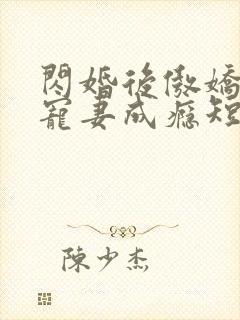 閃婚後傲嬌
寵妻成癮短
陳少杰